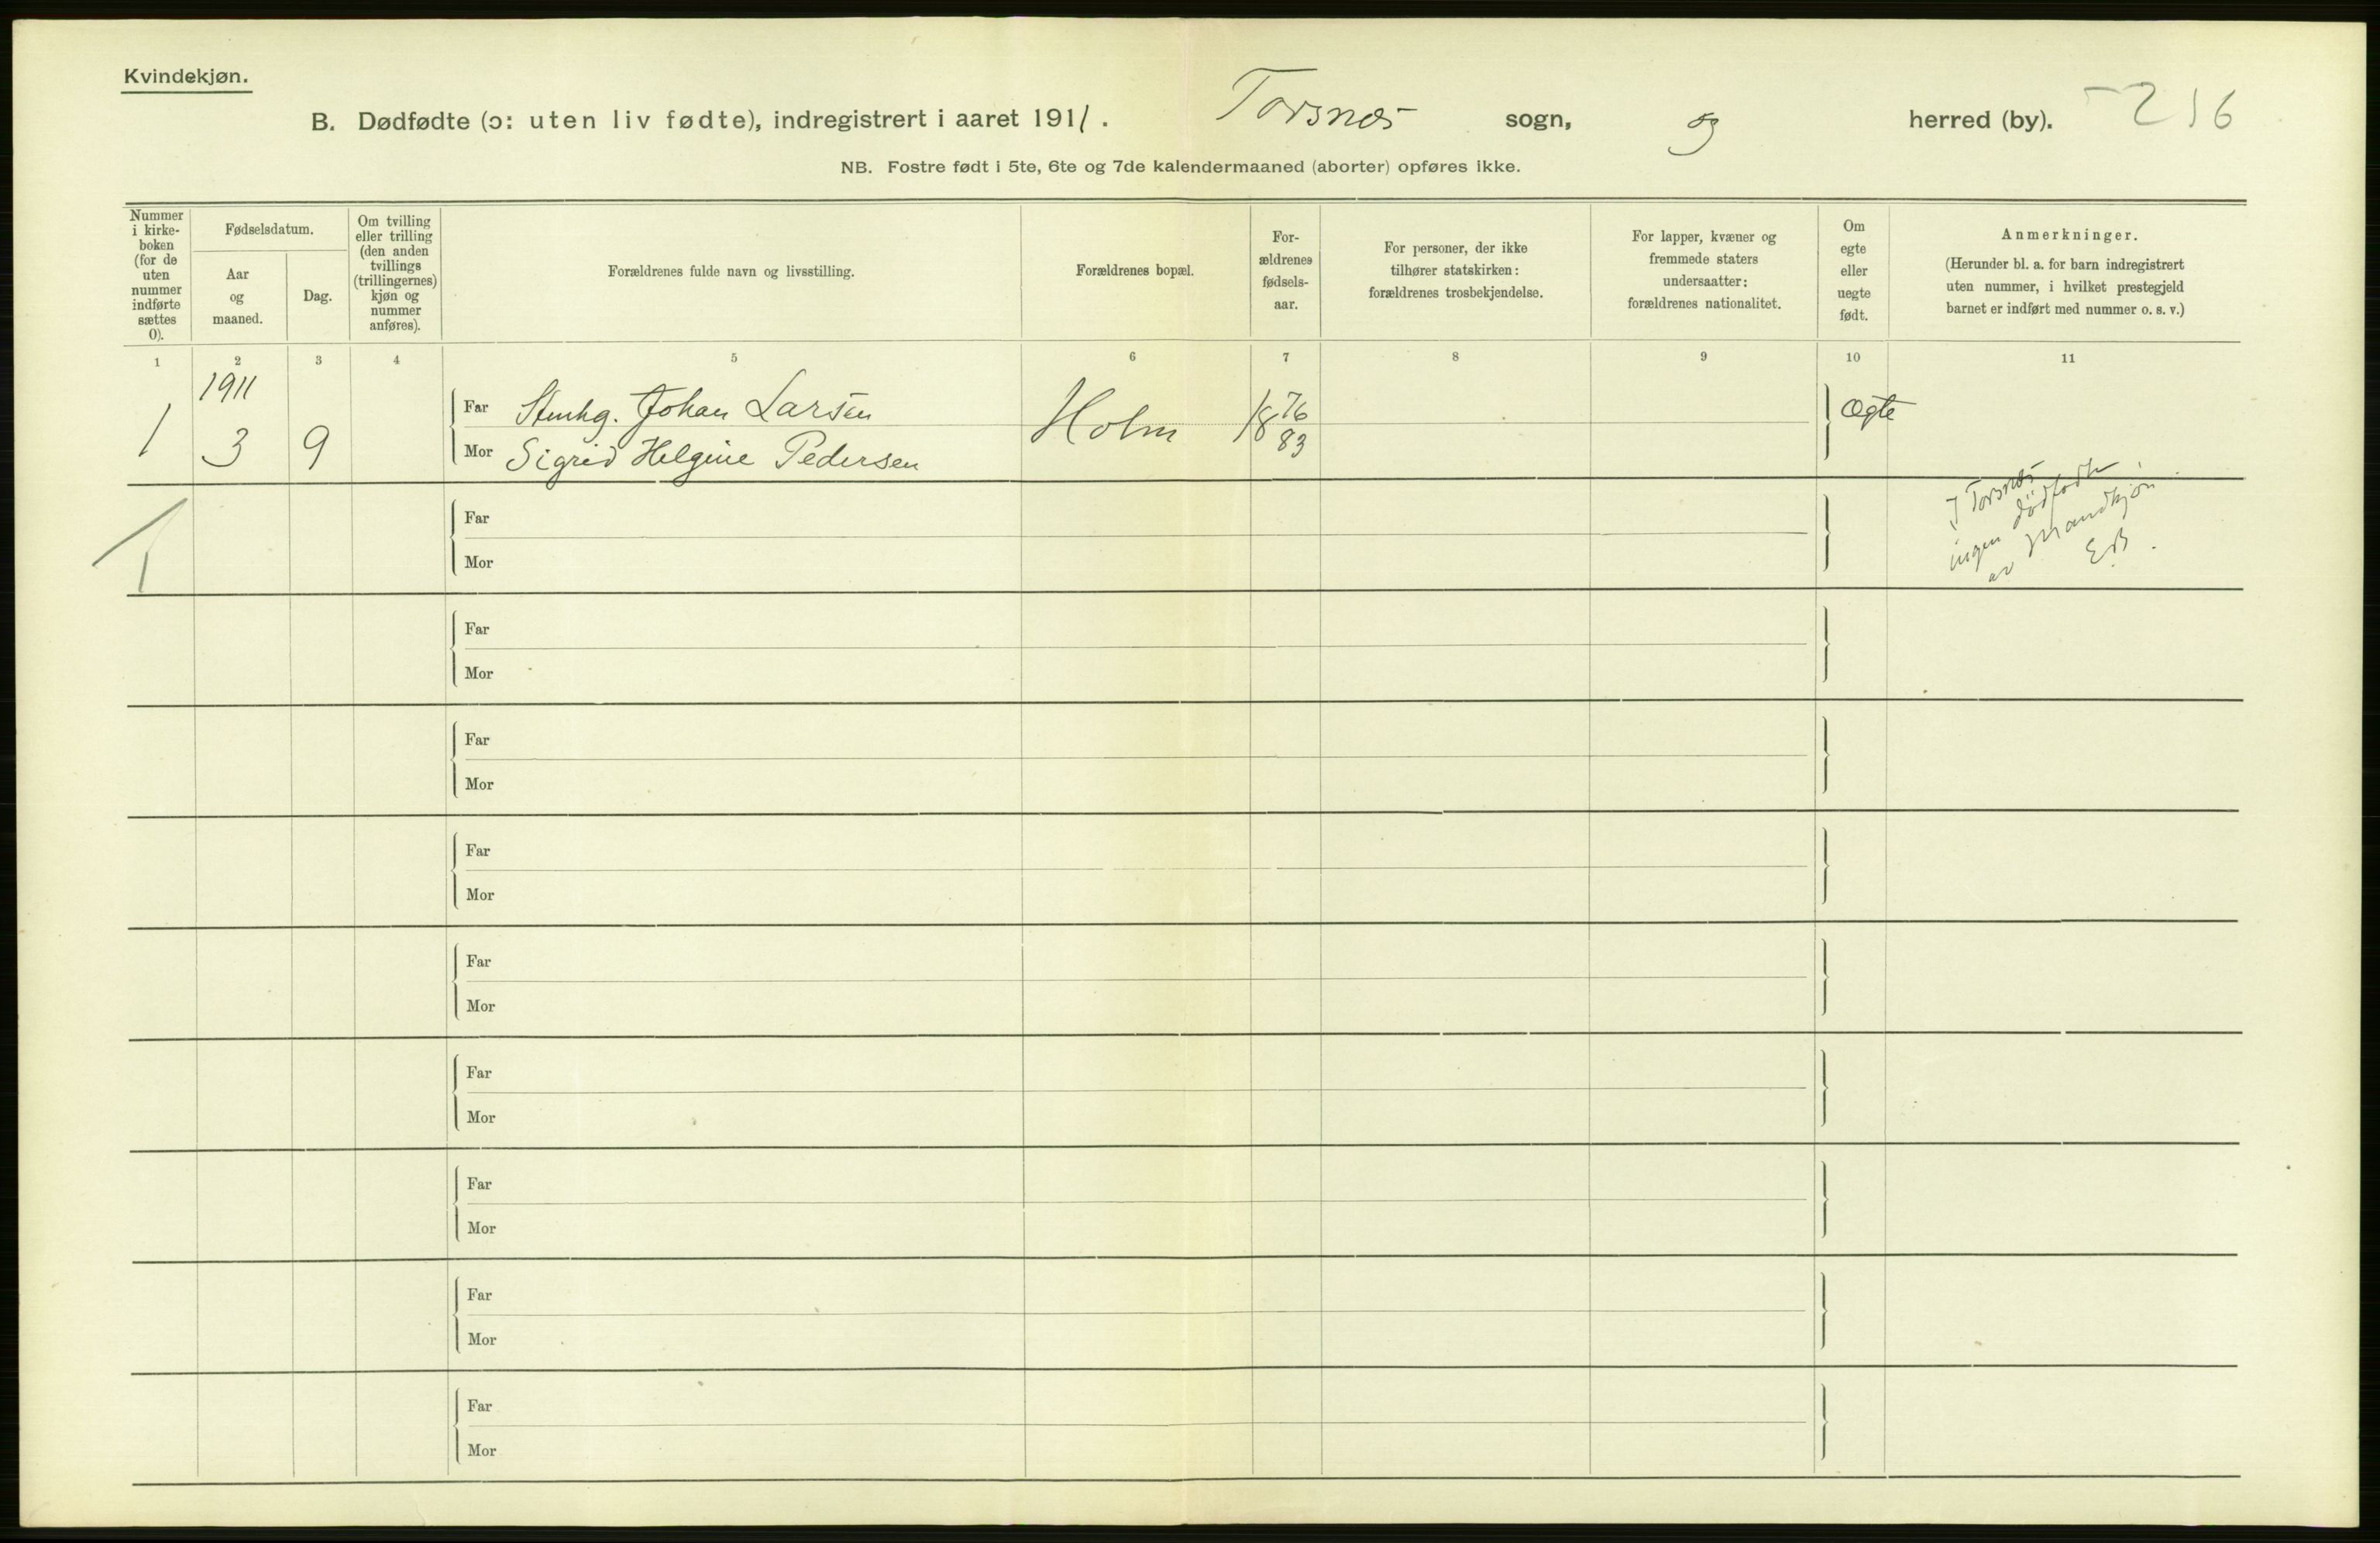 Kvindekjøn.
B. Dødfødte (ɔ: uten liv fødte), indregistrert i aaret 1911. Torsnæs sogn, og herred (by). 216
NB. Fostre født i 5te, 6te og 7de kalendermaaned (aborter) opføres ikke.
Nummer
i kirke-
boken
(for de
uten
nummer
indførte
sættes
0).
Fødselsdatum.
Aar
og
maaned.
Dag.
Om tvilling
eller trilling
(den anden
tvillings
(trillingernes)
kjøn og
nummer
anføres).
Forældrenes fulde navn og livsstilling.
Forældrenes bopæl.
For-
ældrenes
fødsels-
aar.
For personer, der ikke
tilhører statskirken:
forældrenes trosbekjendelse.
For lapper, kvæner og
fremmede staters
undersaatter:
forældrenes nationalitet.
Om
egte
eller
uegte
født.
Anmerkninger.
(Herunder bl. a. for barn indregistrert
uten nummer, i hvilket prestegjeld
barnet er indført med nummer o. s. v.)
1 2 3 4 5 6 7 8 9 10 11
1911
1 3 9
Far Stenhg. Johan Larsen
Mor Sigrid Helgine Pedersen
Holm
18 76
83
Ægte
I Torsnæs
ingen dödfödte
av Mandkjön
EB.
1
Far
Mor
Far
Mor
Far
Mor
Far
Mor
Far
Mor
Far
Mor
Far
Mor
Far
Mor
Far
Mor